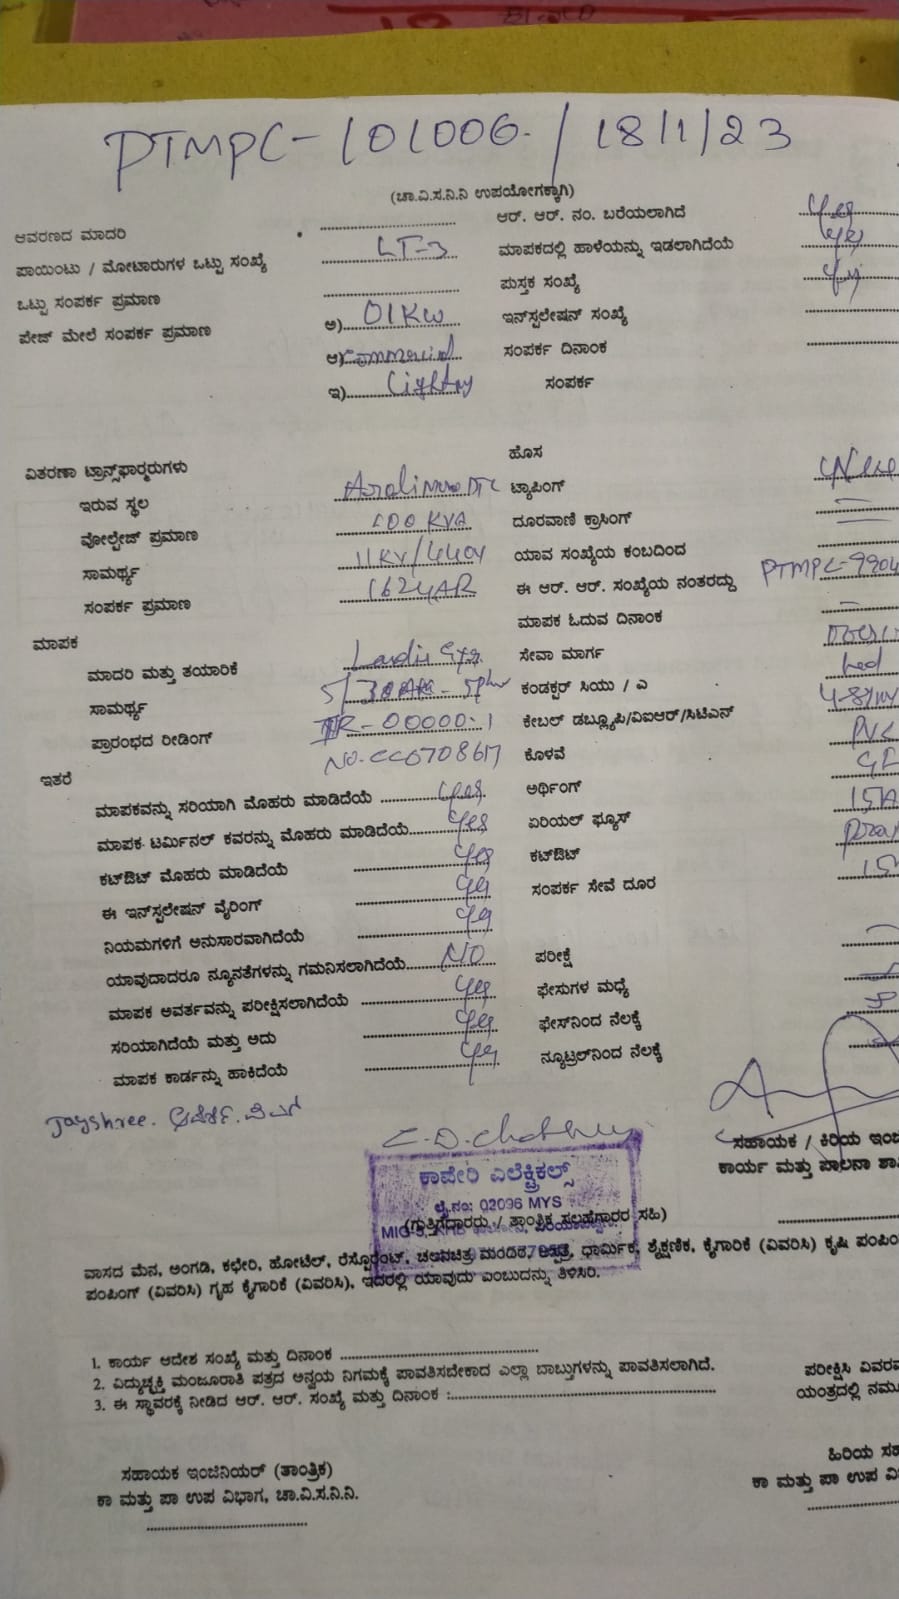 PTMPC-101006 / 18/1/23
(ಚಾ.ವಿ.ಸ.ನಿ.ನಿ ಉಪಯೋಗಕ್ಕಾಗಿ)
ಆವರಣದ ಮಾದರಿ ಆರ್. ಆರ್. ನಂ. ಬರೆಯಲಾಗಿದೆ Yes
ಪಾಯಿಂಟು / ಮೋಟಾರುಗಳ ಒಟ್ಟು ಸಂಖ್ಯೆ LT-3 ಮಾಪಕದಲ್ಲಿ ಹಾಳೆಯನ್ನು ಇಡಲಾಗಿದೆಯೆ Yes
ಒಟ್ಟು ಸಂಪರ್ಕ ಪ್ರಮಾಣ ಪುಸ್ತಕ ಸಂಖ್ಯೆ
ಪೇಜ್ ಮೇಲೆ ಸಂಪರ್ಕ ಪ್ರಮಾಣ ಅ) 01KW ಇನ್‌ಸ್ಟಲೇಷನ್ ಸಂಖ್ಯೆ
ಆ) Commercial ಸಂಪರ್ಕ ದಿನಾಂಕ
ಇ) Lighting ಸಂಪರ್ಕ
ವಿತರಣಾ ಟ್ರಾನ್ಸ್‌ಫಾರ್‍ಮರುಗಳು ಹೊಸ
ಇರುವ ಸ್ಥಲ ಟ್ಯಾಪಿಂಗ್
ವೋಲ್ಟೇಜ್ ಪ್ರಮಾಣ 100 KVA ದೂರವಾಣಿ ಕ್ರಾಸಿಂಗ್
ಸಾಮರ್ಥ್ಯ 11KV/440V ಯಾವ ಸಂಖ್ಯೆಯ ಕಂಬದಿಂದ
ಸಂಪರ್ಕ ಪ್ರಮಾಣ ಈ ಆರ್. ಆರ್. ಸಂಖ್ಯೆಯ ನಂತರದ್ದು PTMPC-9904
ಮಾಪಕ ಮಾಪಕ ಓದುವ ದಿನಾಂಕ
ಮಾದರಿ ಮತ್ತು ತಯಾರಿಕೆ Landis Gyr ಸೇವಾ ಮಾರ್ಗ
ಸಾಮರ್ಥ್ಯ ಕಂಡಕ್ಟರ್ ಸಿಯು / ಎ
ಪ್ರಾರಂಭದ ರೀಡಿಂಗ್ IR-00000.1 ಕೇಬಲ್ ಡಬ್ಲ್ಯೂಪಿ/ವಿಐಆರ್/ಸಿಟಿಎಸ್
No. CC0708617 ಕೊಳವೆ PVC
ಇತರೆ
ಮಾಪಕವನ್ನು ಸರಿಯಾಗಿ ಮೊಹರು ಮಾಡಿದೆಯೆ Yes ಅರ್ಥಿಂಗ್
ಮಾಪಕ ಟರ್ಮಿನಲ್ ಕವರನ್ನು ಮೊಹರು ಮಾಡಿದೆಯೆ Yes ಏರಿಯಲ್ ಫ್ಯೂಸ್
ಕಟ್‌ಔಟ್ ಮೊಹರು ಮಾಡಿದೆಯೆ Yes ಕಟ್‌ಔಟ್
ಈ ಇನ್‌ಸ್ಟಲೇಷನ್ ವೈರಿಂಗ್ Yes ಸಂಪರ್ಕ ಸೇವೆ ದೂರ
ನಿಯಮಗಳಿಗೆ ಅನುಸಾರವಾಗಿದೆಯೆ Yes
ಯಾವುದಾದರೂ ನ್ಯೂನತೆಗಳನ್ನು ಗಮನಿಸಲಾಗಿದೆಯೆ NO ಪರೀಕ್ಷೆ
ಮಾಪಕ ಅವರ್ತವನ್ನು ಪರೀಕ್ಷಿಸಲಾಗಿದೆಯೆ Yes ಫೇಸುಗಳ ಮಧ್ಯೆ
ಸರಿಯಾಗಿದೆಯೆ ಮತ್ತು ಅದು Yes ಫೇಸ್‌ನಿಂದ ನೆಲಕ್ಕೆ
ಮಾಪಕ ಕಾರ್ಡನ್ನು ಹಾಕಿದೆಯೆ Yes ನ್ಯೂಟ್ರಲ್‌ನಿಂದ ನೆಲಕ್ಕೆ
Jayshree.
ಸಹಾಯಕ / ಕಿರಿಯ ಇಂಜಿ
ಕಾರ್ಯ ಮತ್ತು ಪಾಲನಾ ಶಾ
ಕಾವೇರಿ ಎಲೆಕ್ಟ್ರಿಕಲ್ಸ್
ಲೈ.ನಂ: 02096 MYS
(ಗುತ್ತಿಗೆದಾರರು / ತಾಂತ್ರಿಕ ಸಲಹೆಗಾರರ ಸಹಿ)
ವಾಸದ ಮನೆ, ಅಂಗಡಿ, ಕಛೇರಿ, ಹೋಟೆಲ್, ರೆಸ್ಟೊರೆಂಟ್, ಚಲನಚಿತ್ರ ಮಂದಿರ, ಆಸ್ಪತ್ರೆ, ಧಾರ್ಮಿಕ, ಶೈಕ್ಷಣಿಕ, ಕೈಗಾರಿಕೆ (ವಿವರಿಸಿ) ಕೃಷಿ ಪಂಪಿಂ
ಪಂಪಿಂಗ್ (ವಿವರಿಸಿ) ಗೃಹ ಕೈಗಾರಿಕೆ (ವಿವರಿಸಿ), ಇದರಲ್ಲಿ ಯಾವುದು ಎಂಬುದನ್ನು ತಿಳಿಸಿರಿ.
1. ಕಾರ್ಯ ಆದೇಶ ಸಂಖ್ಯೆ ಮತ್ತು ದಿನಾಂಕ
2. ವಿದ್ಯುಚ್ಛಕ್ತಿ ಮಂಜೂರಾತಿ ಪತ್ರದ ಅನ್ವಯ ನಿಗಮಕ್ಕೆ ಪಾವತಿಸಬೇಕಾದ ಎಲ್ಲಾ ಬಾಬ್ತುಗಳನ್ನು ಪಾವತಿಸಲಾಗಿದೆ. ಪರೀಕ್ಷಿಸಿ ವಿವರವ
3. ಈ ಸ್ಥಾವರಕ್ಕೆ ನೀಡಿದ ಆರ್. ಆರ್. ಸಂಖ್ಯೆ ಮತ್ತು ದಿನಾಂಕ : ಯಂತ್ರದಲ್ಲಿ ನಮೂ
ಸಹಾಯಕ ಇಂಜಿನಿಯರ್ (ತಾಂತ್ರಿಕ) ಹಿರಿಯ ಸಹ
ಕಾ ಮತ್ತು ಪಾ ಉಪ ವಿಭಾಗ, ಚಾ.ವಿ.ಸ.ನಿ.ನಿ. ಕಾ ಮತ್ತು ಪಾ ಉಪ ವಿ